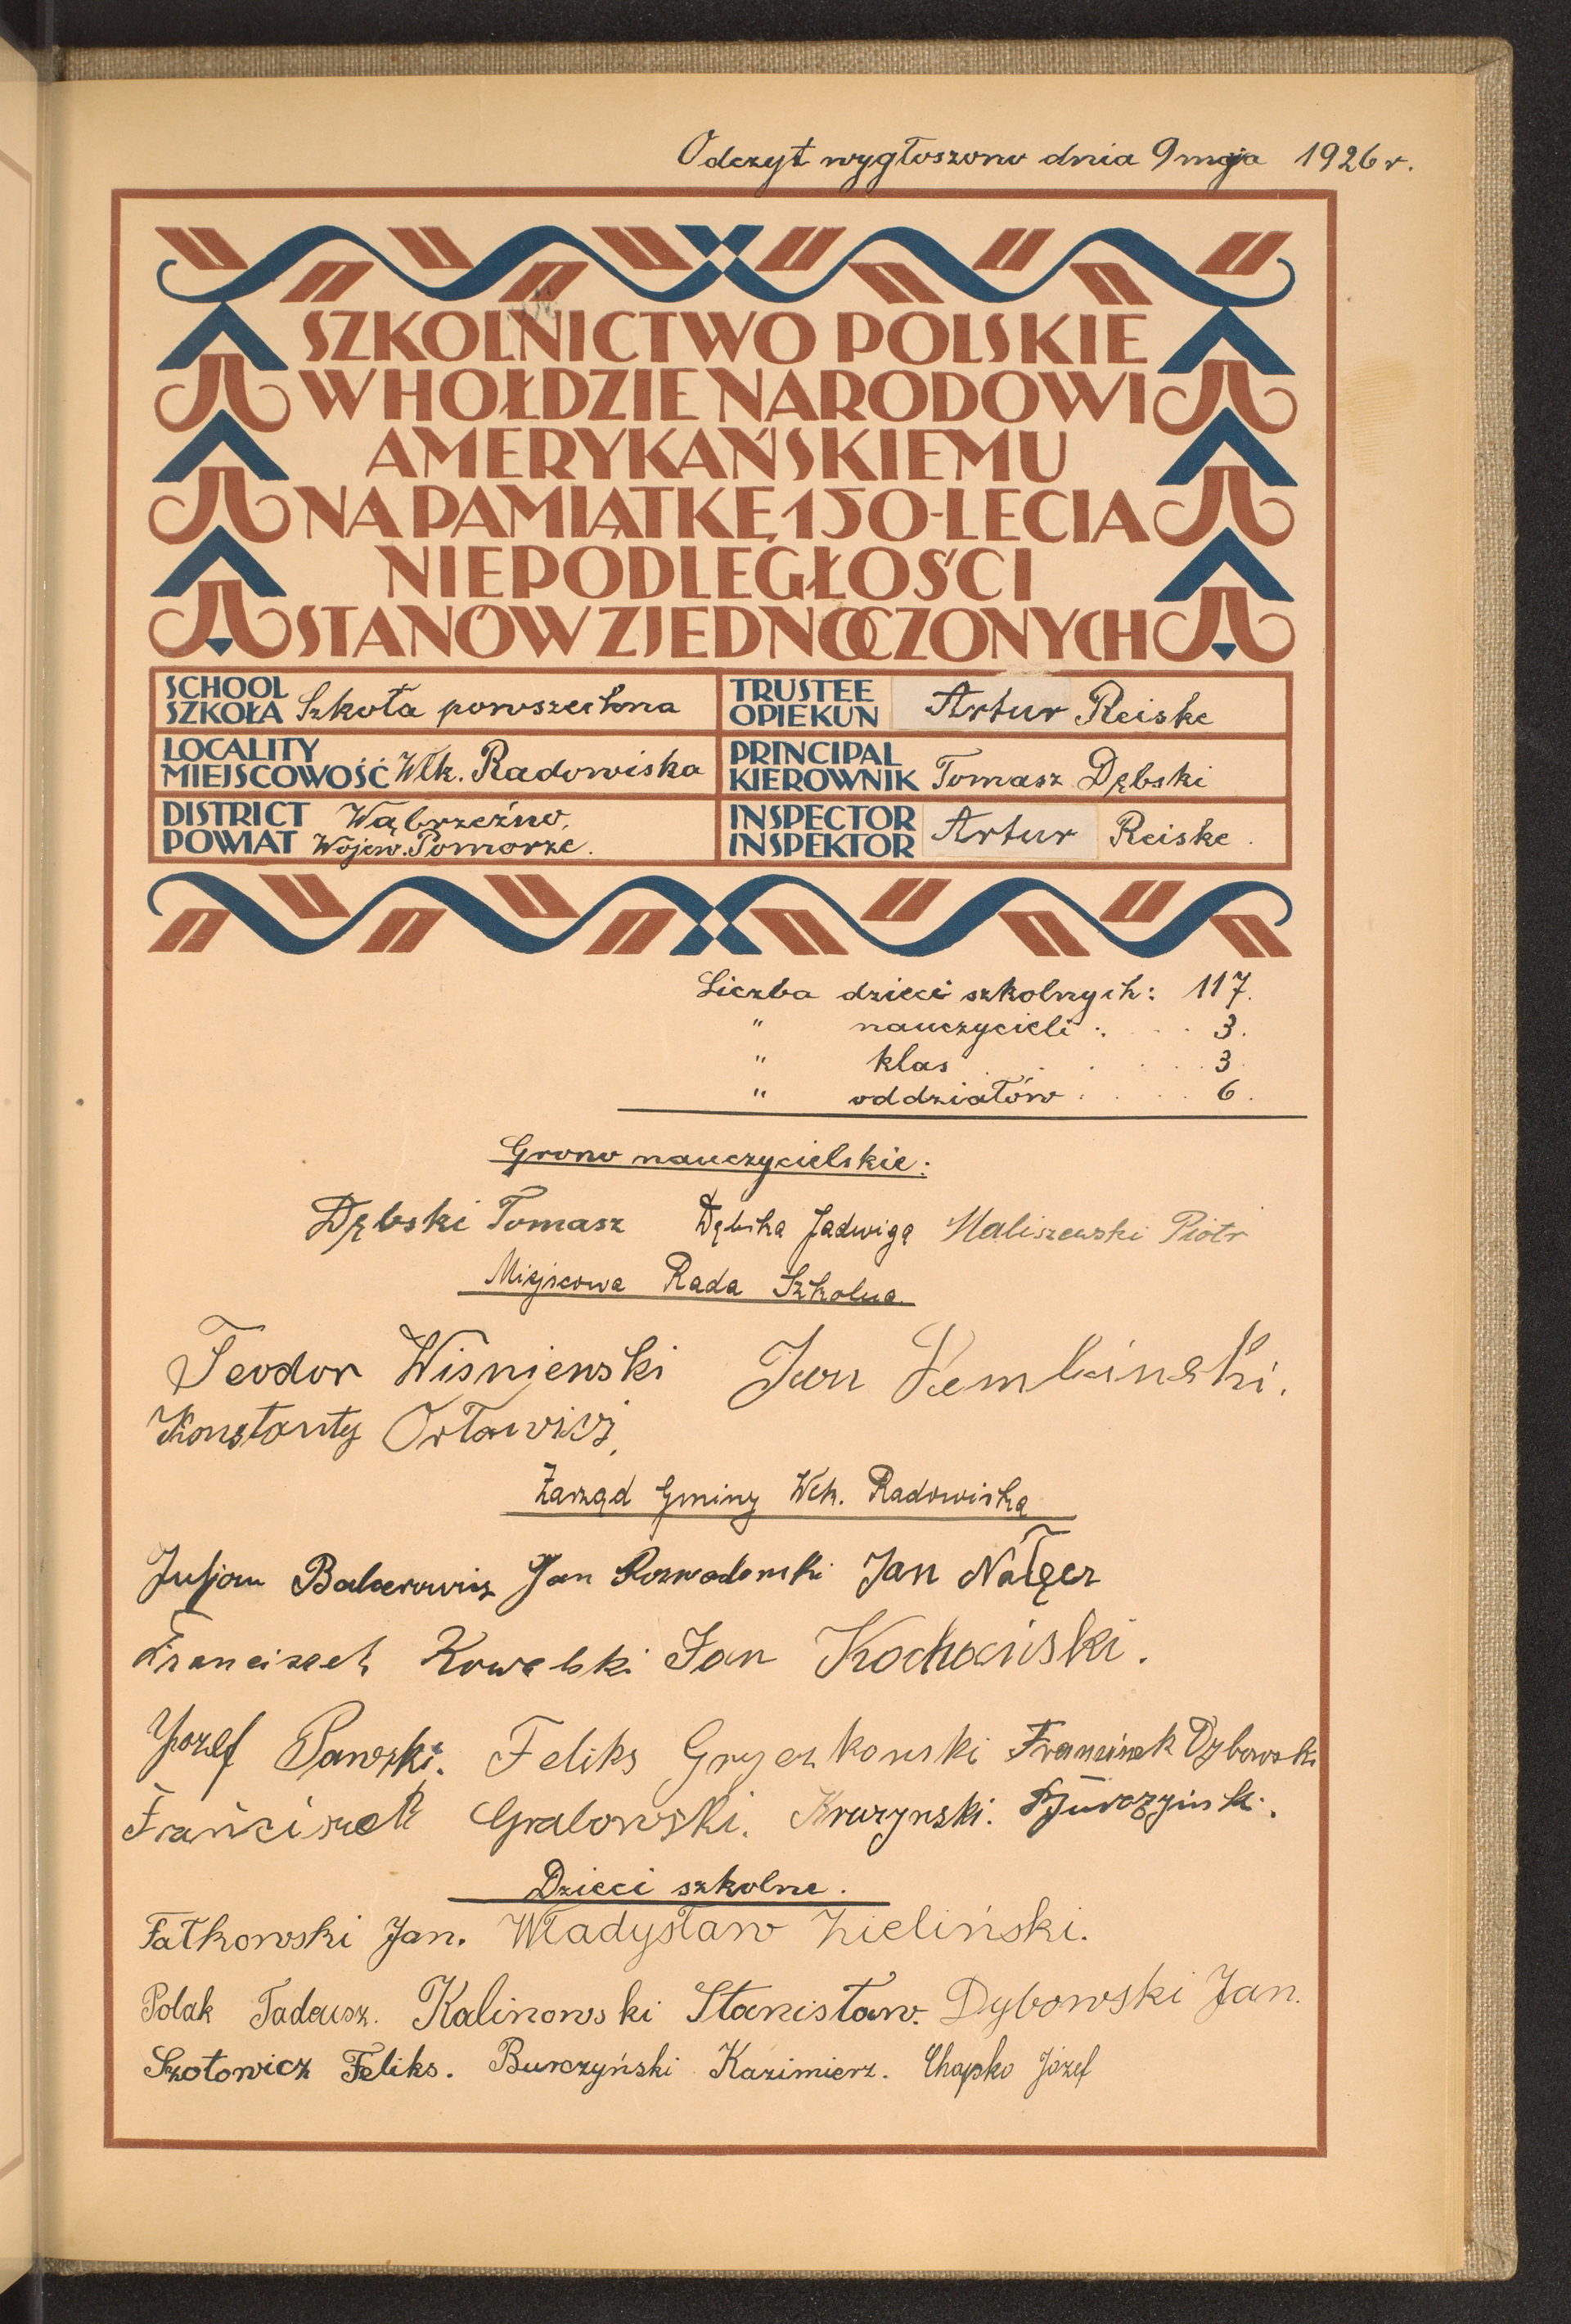 Odczyt wygłoszono dnia 9 maja 1926 r.
SZKOLNICTWO POLSKIE
W HOŁDZIE NARODOWI
AMERYKAŃSKIEMU
NA PAMIĄTKĘ 150-LECIA
NIEPODLEGŁOŚCI
STANÓW ZJEDNOCZONYCH
SCHOOL
SZKOŁA Szkoła powszechna
TRUSTEE
OPIEKUN Artur Reiske
LOCALITY
MIEJSCOWOŚĆ Wlk. Radowiska
PRINCIPAL
KIEROWNIK Tomasz Dębski
DISTRICT Wąbrzeźno,
POWIAT Wojew. Pomorze.
INSPECTOR
INSPEKTOR Artur Reiske.
Liczba dzieci szkolnych: 117.
" nauczycieli : . . . 3.
" klas . . . . . 3
" oddziałów . . . . 6.
Grono nauczycielskie:
Dębski Tomasz Dębska Jadwiga Maliszewski Piotr
Miejscowa Rada Szkolna
Teodor Wiśnjewski Jan Dembinski.
Konstanty Orłowicz,
Zarząd Gminy Wlk. Radowiska
Juljan Balcerowicz Jan Rozwadowski Jan Nałęcz
Franciszek Kowalski Jan Kochański.
Jozef Feliks Gryczkowski Franciszek Dybowski
Franciszek Grabowski.
Dzieci szkolne.
Fałkowski Jan. Władysław Zieliński.
Polak Tadeusz. Kalinowski Stanisław. Dybowski Jan.
Szotowicz Feliks. Burczyński Kazimierz. Chapko Józef